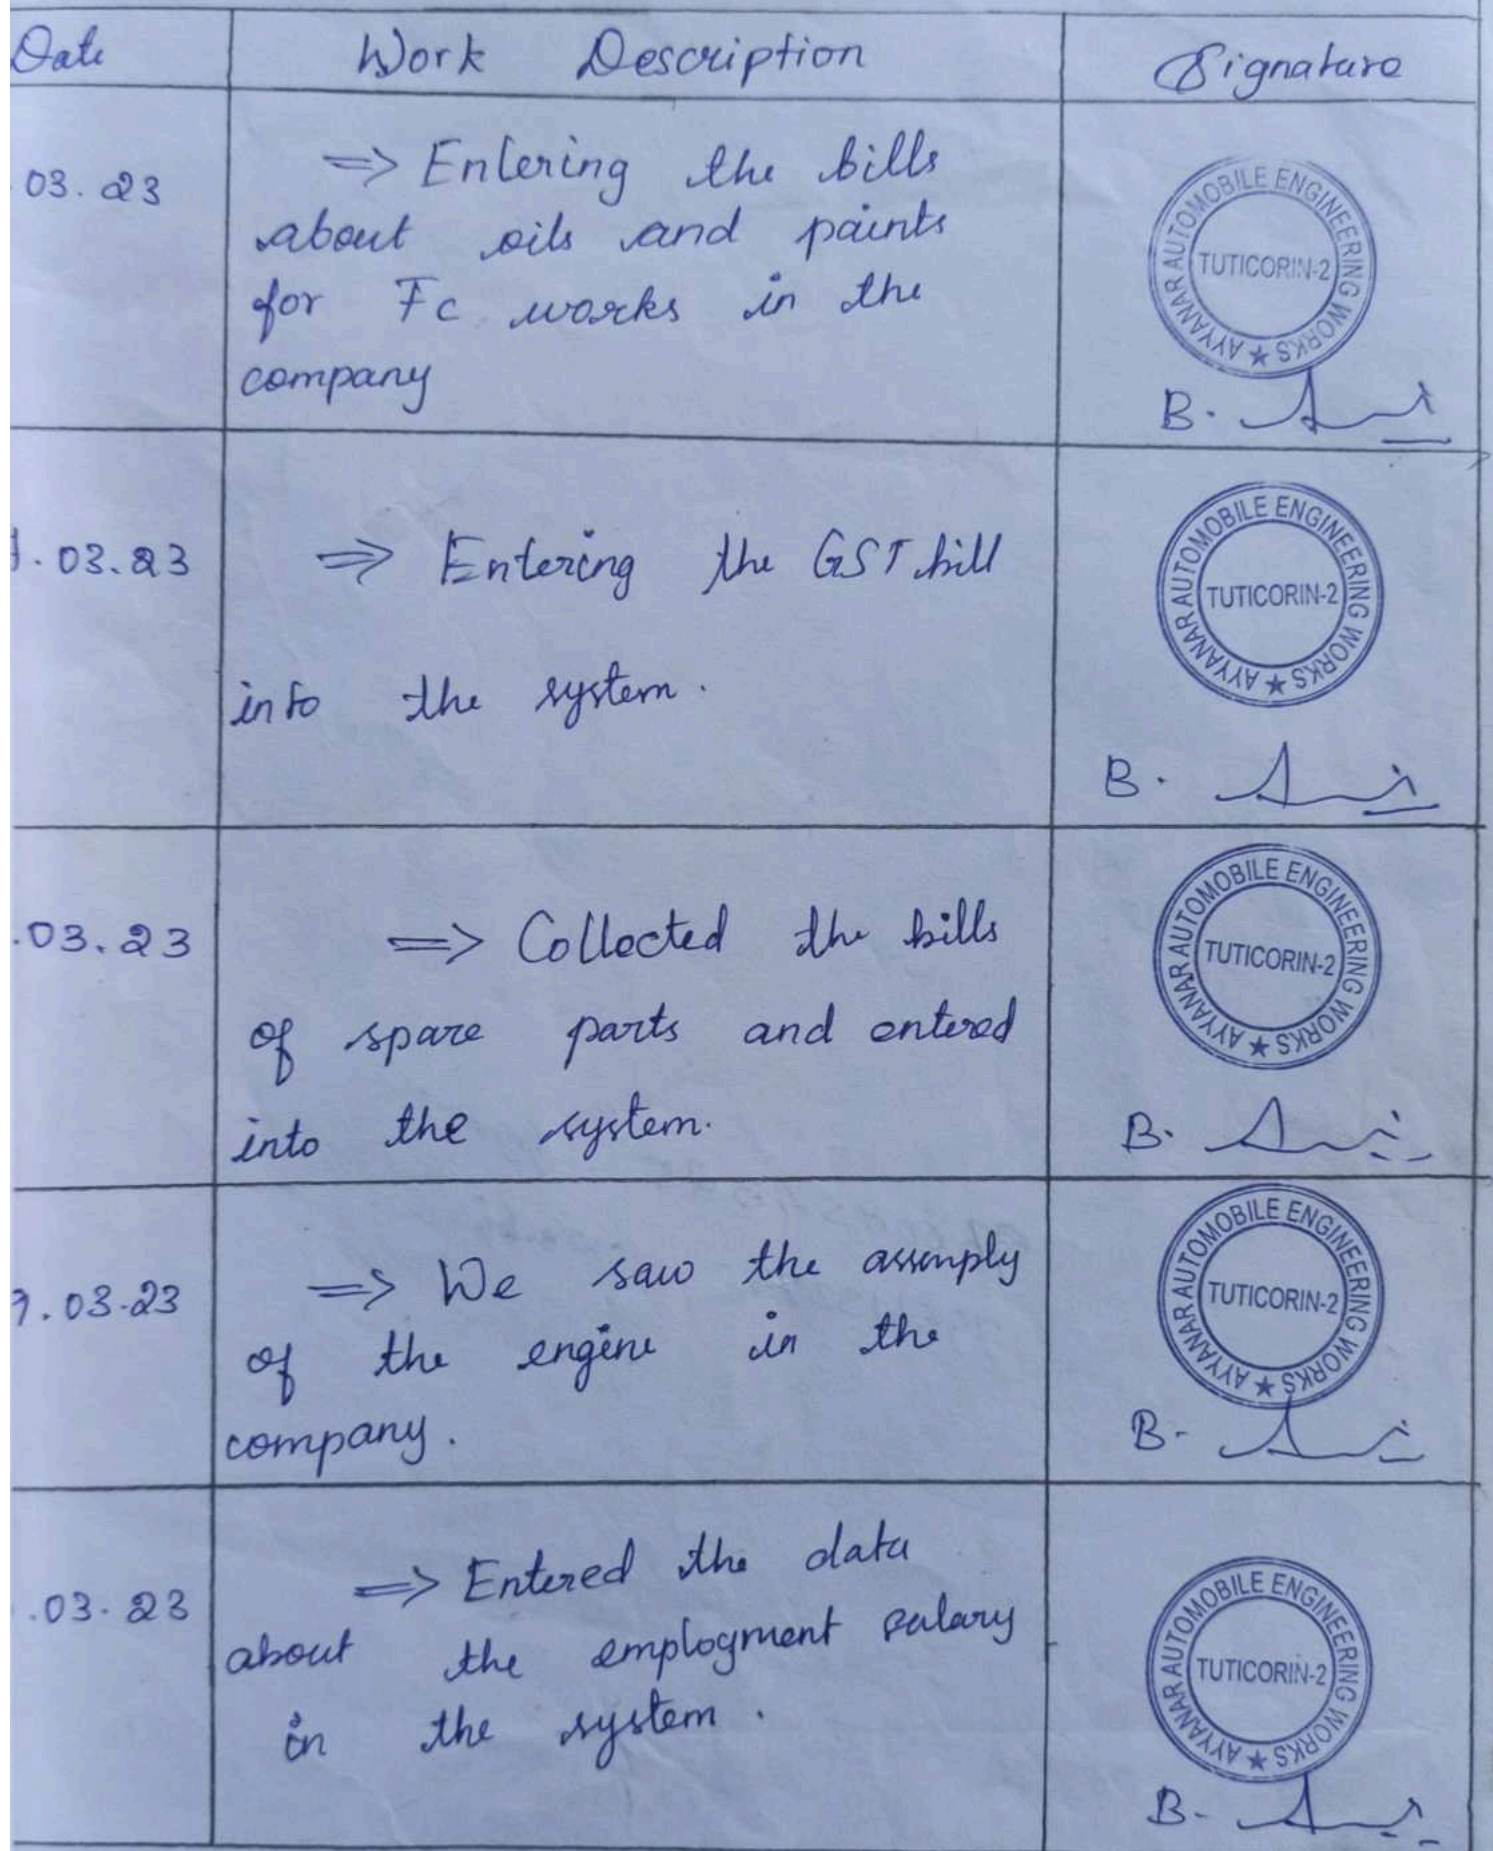 Date Work Description Signature
03.23 => Entering the bills
about oils and paints
for Fc works in the
company
AYYANAR AUTOMOBILE ENGINEERING WORKS ★
TUTICORIN-2
B.
.03.23 => Entering the GST bill
into the system.
AYYANAR AUTOMOBILE ENGINEERING WORKS ★
TUTICORIN-2
B.
.03.23 => Collected the bills
of spare parts and entered
into the system.
AYYANAR AUTOMOBILE ENGINEERING WORKS ★
TUTICORIN-2
B.
.03.23 => We saw the assemply
of the engine in the
company.
AYYANAR AUTOMOBILE ENGINEERING WORKS ★
TUTICORIN-2
B.
.03.23 => Entered the data
about the employment salary
in the system.
AYYANAR AUTOMOBILE ENGINEERING WORKS ★
TUTICORIN-2
B.